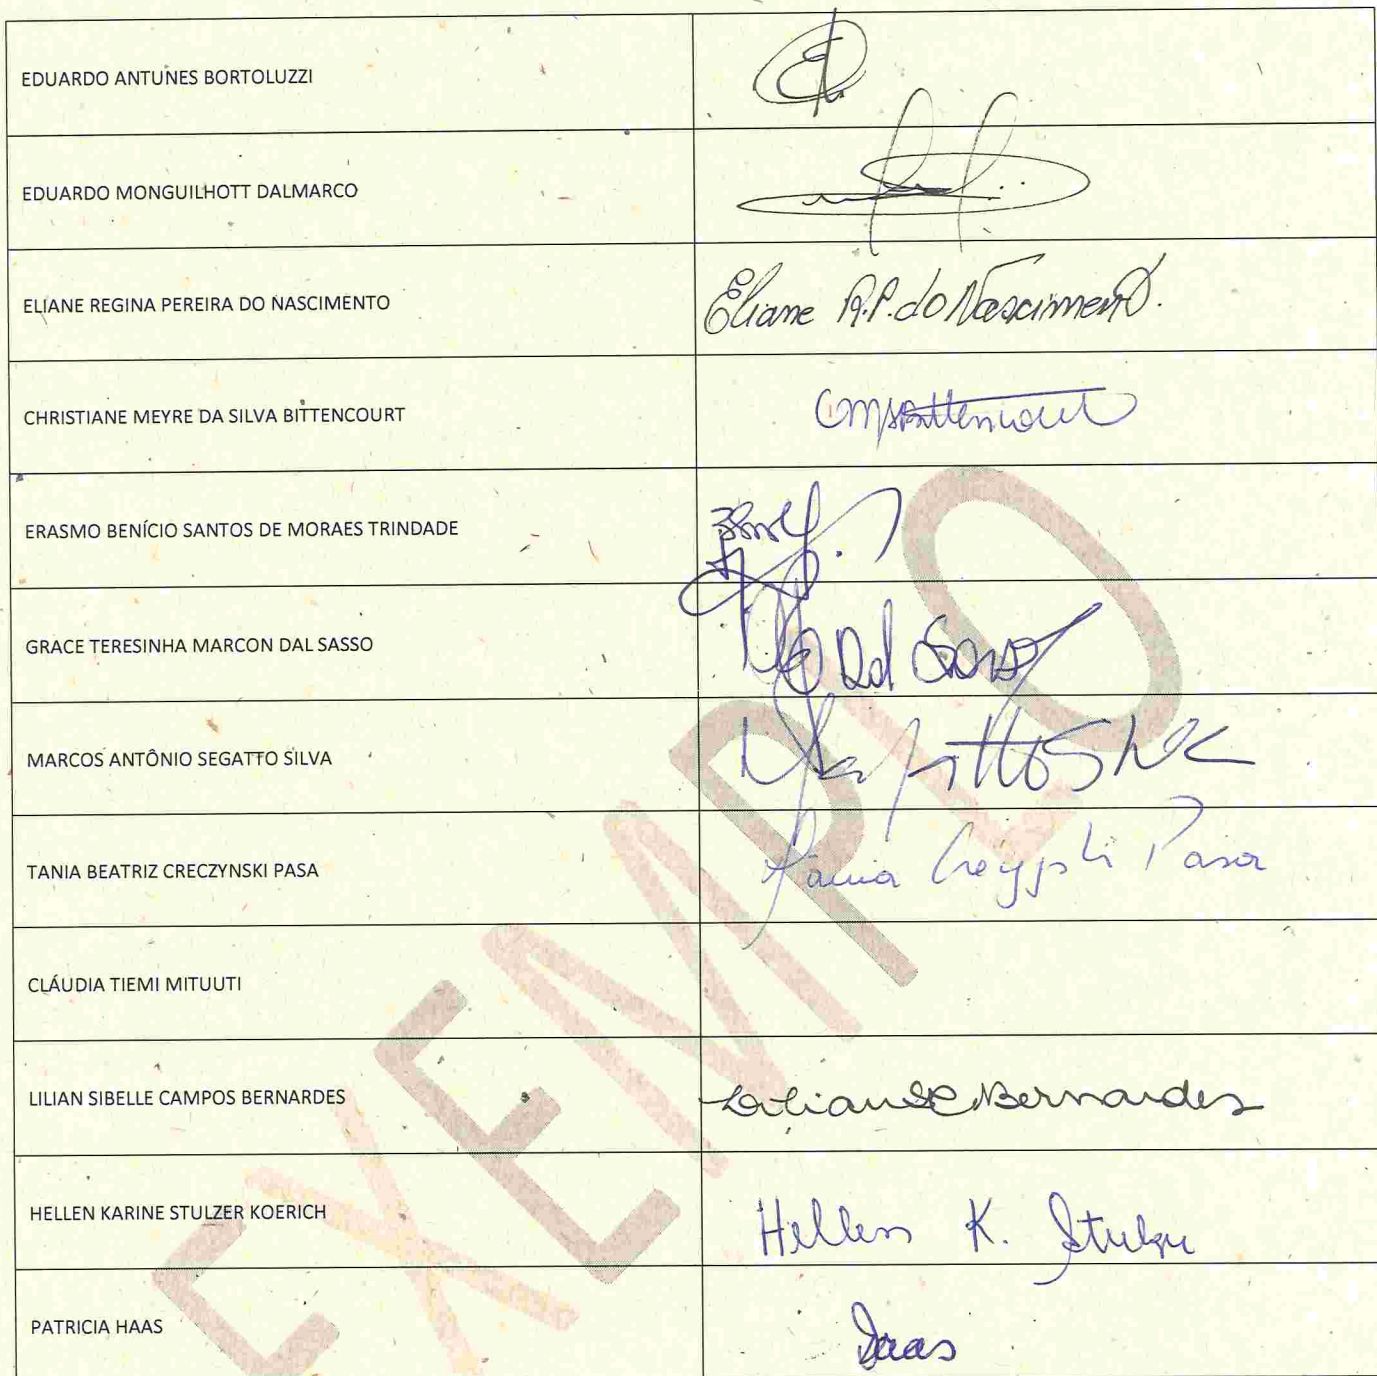 EDUARDO ANTUNES BORTOLUZZI
EDUARDO MONGUILHOTT DALMARCO
ELIANE REGINA PEREIRA DO NASCIMENTO Eliane R.P. do Nascimento.
CHRISTIANE MEYRE DA SILVA BITTENCOURT CMSBittencourt
ERASMO BENÍCIO SANTOS DE MORAES TRINDADE
GRACE TERESINHA MARCON DAL SASSO Dal Sasso
MARCOS ANTÔNIO SEGATTO SILVA
TANIA BEATRIZ CRECZYNSKI PASA Tania Pasa
CLÁUDIA TIEMI MITUUTI
LILIAN SIBELLE CAMPOS BERNARDES Lilian SC Bernardes
HELLEN KARINE STULZER KOERICH Hellen K. Stulzer
PATRICIA HAAS Haas
EXEMPLO